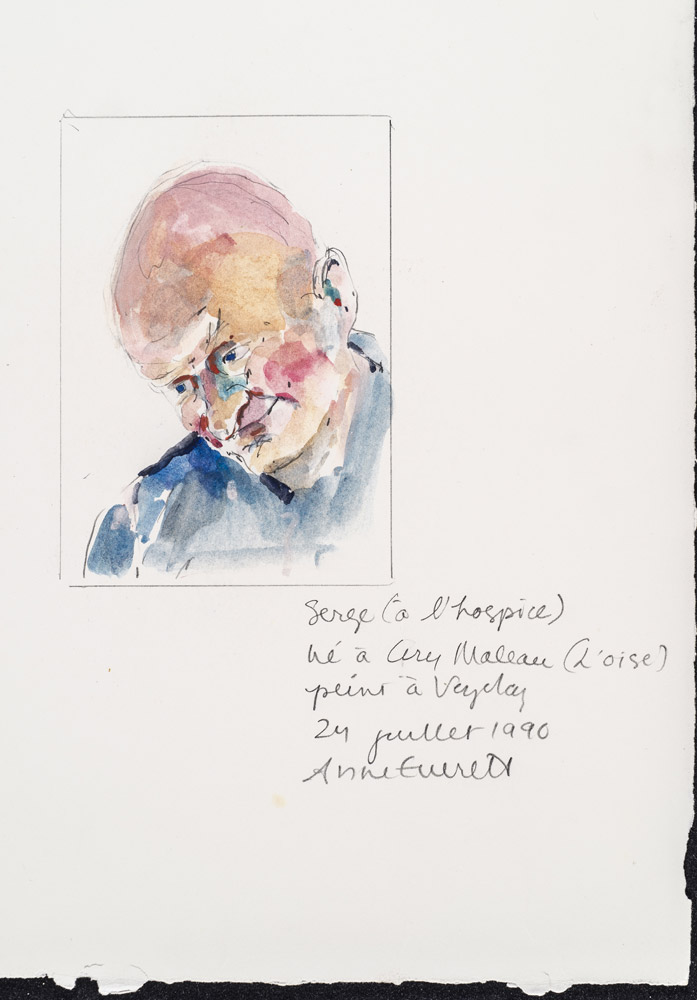 Serge (à l'hospice)
né à Ciry Maleau (L'oise)
peint à Vezelay
24 juillet 1990
Anne Everett